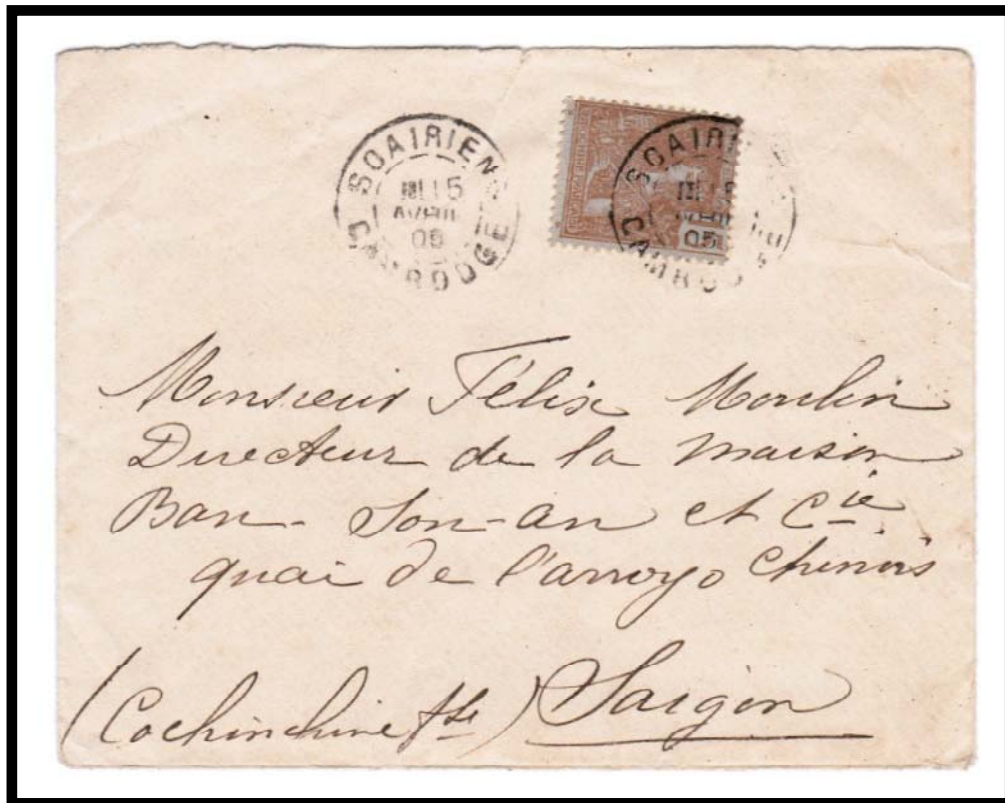 SOAIRIENG
15
AVRIL
05
CAMBODGE
SOAIRI
05
CAMBO
Monsieur Félix Moulin
Directeur de la maison
Ban-Son-an et Cie
quai de l'arroyo chinois
(Cochinchine fse) Saigon